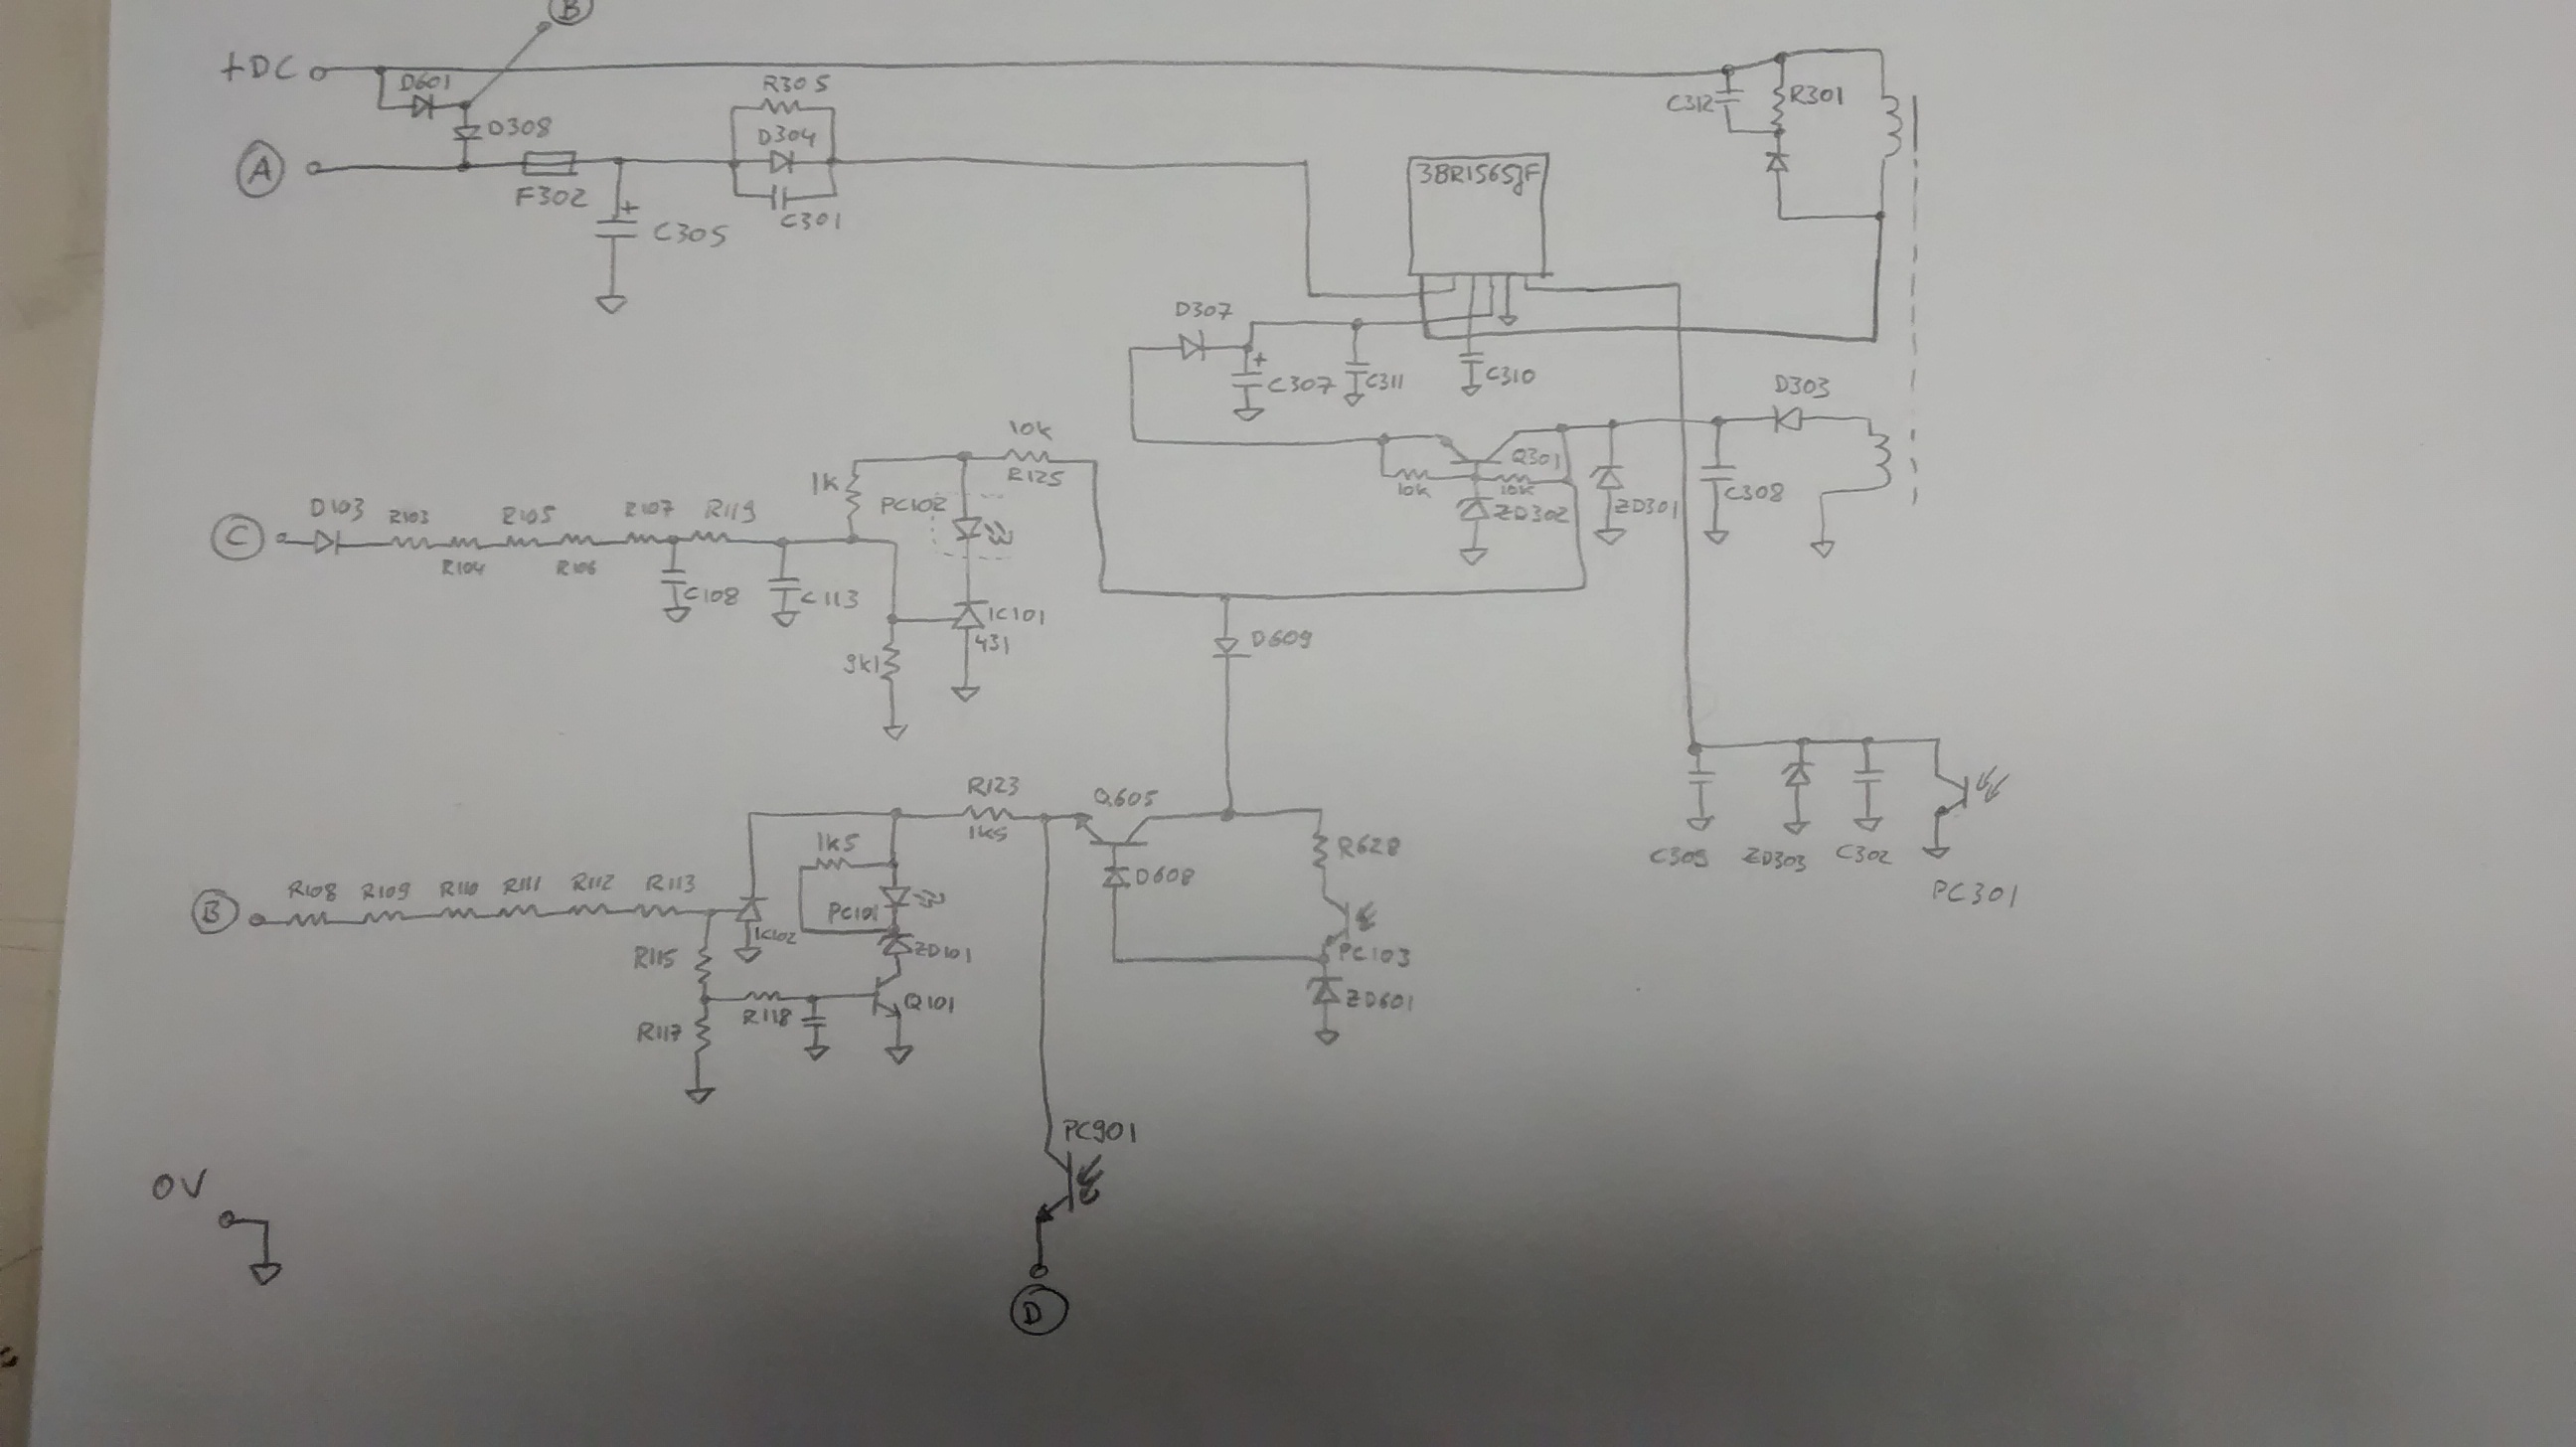 B
+DC
D601
R305
C312
R301
D308
D304
A
F302
C305
C301
3BR1565JF
D307
C307
C311
C310
D303
10k
R125
1k
PC102
Q301
10k
10k
ZD302
ZD301
C308
C
D103
R103
R105
R107
R119
R104
R106
C108
C113
IC101
431
9k1
D609
R123
1k5
Q605
1k5
R628
C309
ZD303
C302
PC301
D608
B
R108
R109
R110
R111
R112
R113
PC101
IC102
ZD101
R115
PC103
ZD601
R118
Q101
R117
PC901
0V
D